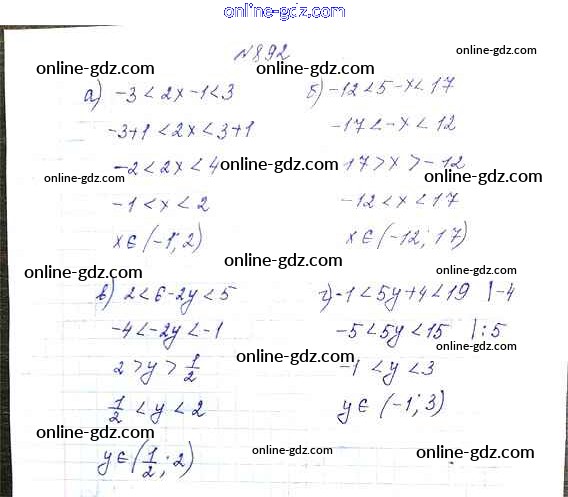 online-gdz.com
№892
online-gdz.com
online-gdz.com
а) -3<2x-1<3
-3+1<2x<3+1
-2<2x<4
-1<x<2
x∈(-1;2)
б) -12<5-x<17
-17<-x<12
17>x>-12
-12<x<17
x∈(-12;17)
online-gdz.com
online-gdz.com
online-gdz.com
online-gdz.com
online-gdz.com
online-gdz.com
online-gdz.com
online-gdz.com
online-gdz.com
online-gdz.com
в) 2<6-2y<5
-4<-2y<-1
2>y>1/2
1/2<y<2
y∈(1/2;2)
г) -1<5y+4<19 |-4
-5<5y<15 |:5
-1<y<3
y∈(-1;3)
online-gdz.com
online-gdz.com
online-gdz.com
online-gdz.com
online-gdz.com
online-gdz.com
online-gdz.com
online-gdz.com
online-gdz.com